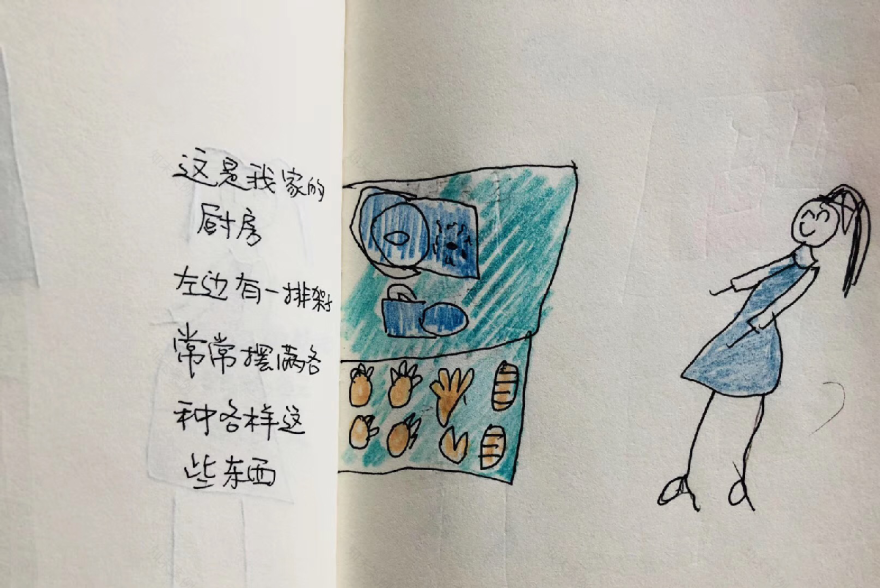 这是我家的
厨房
左边有一排架子
常常摆满各
种各样这
些东西